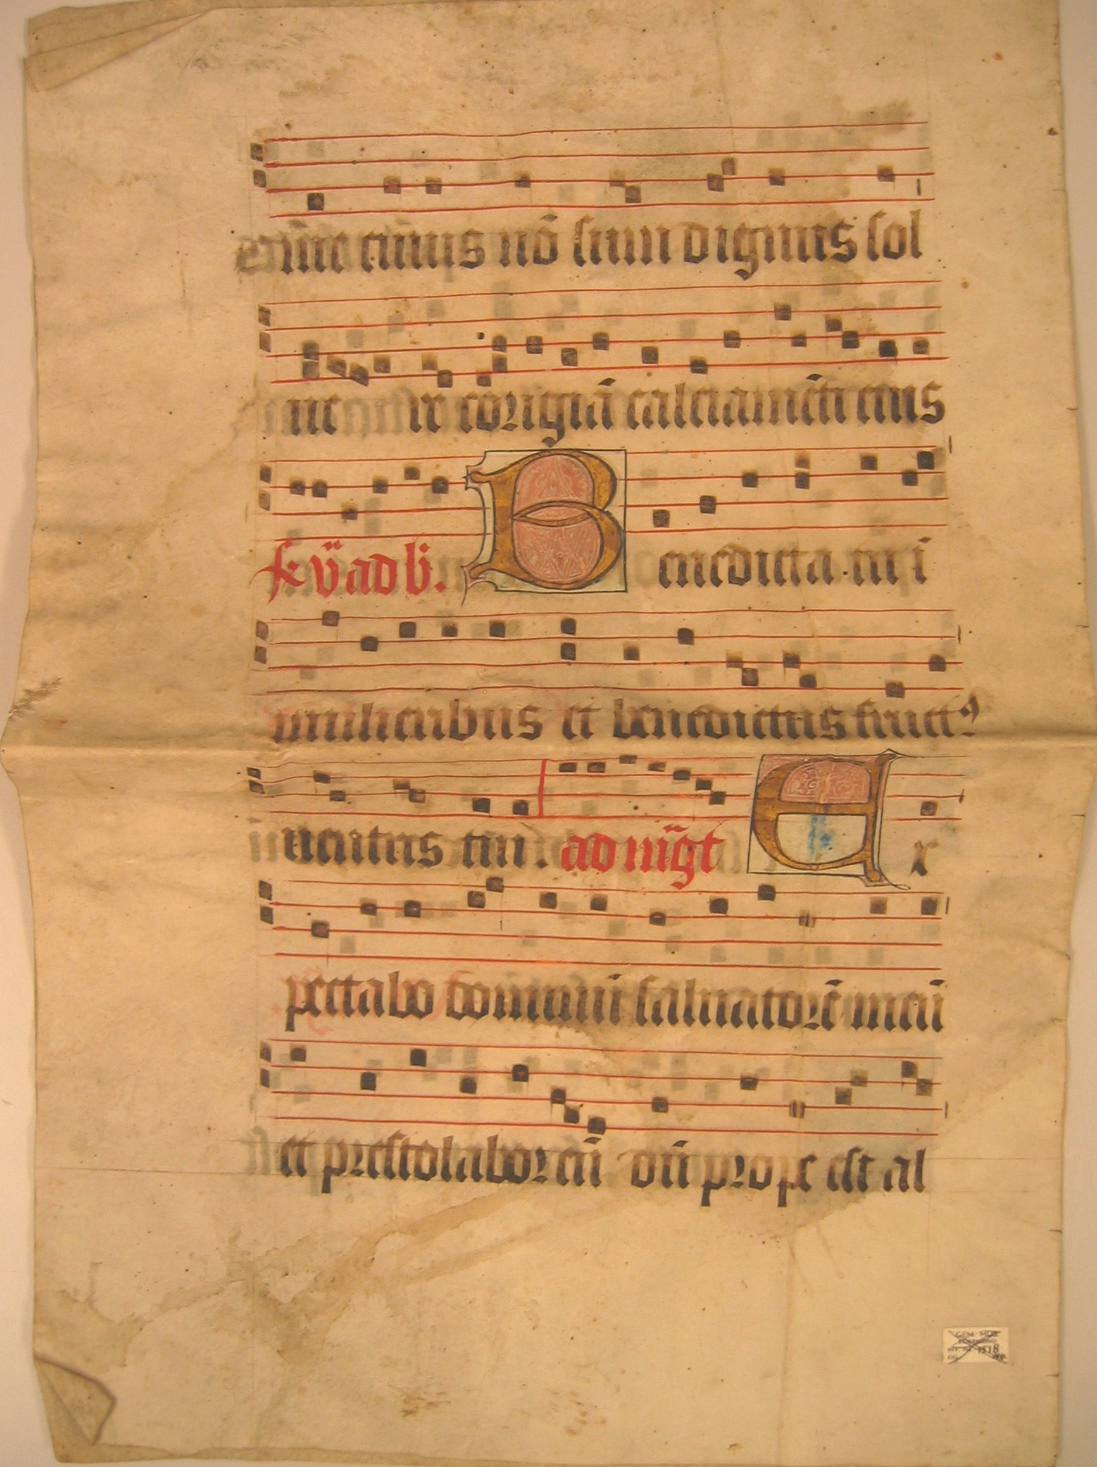 cuiꝯ nō sum dignus sol
ue re corrigiā calciamēti eius
fe v̄ ad b̄. Benedicta tu ī
mulieribus et benedictus fructꝰ
uentus tui. ad mḡt Ex
pectabo dominū saluatorē meū
et prestolabor eū dū prope est al